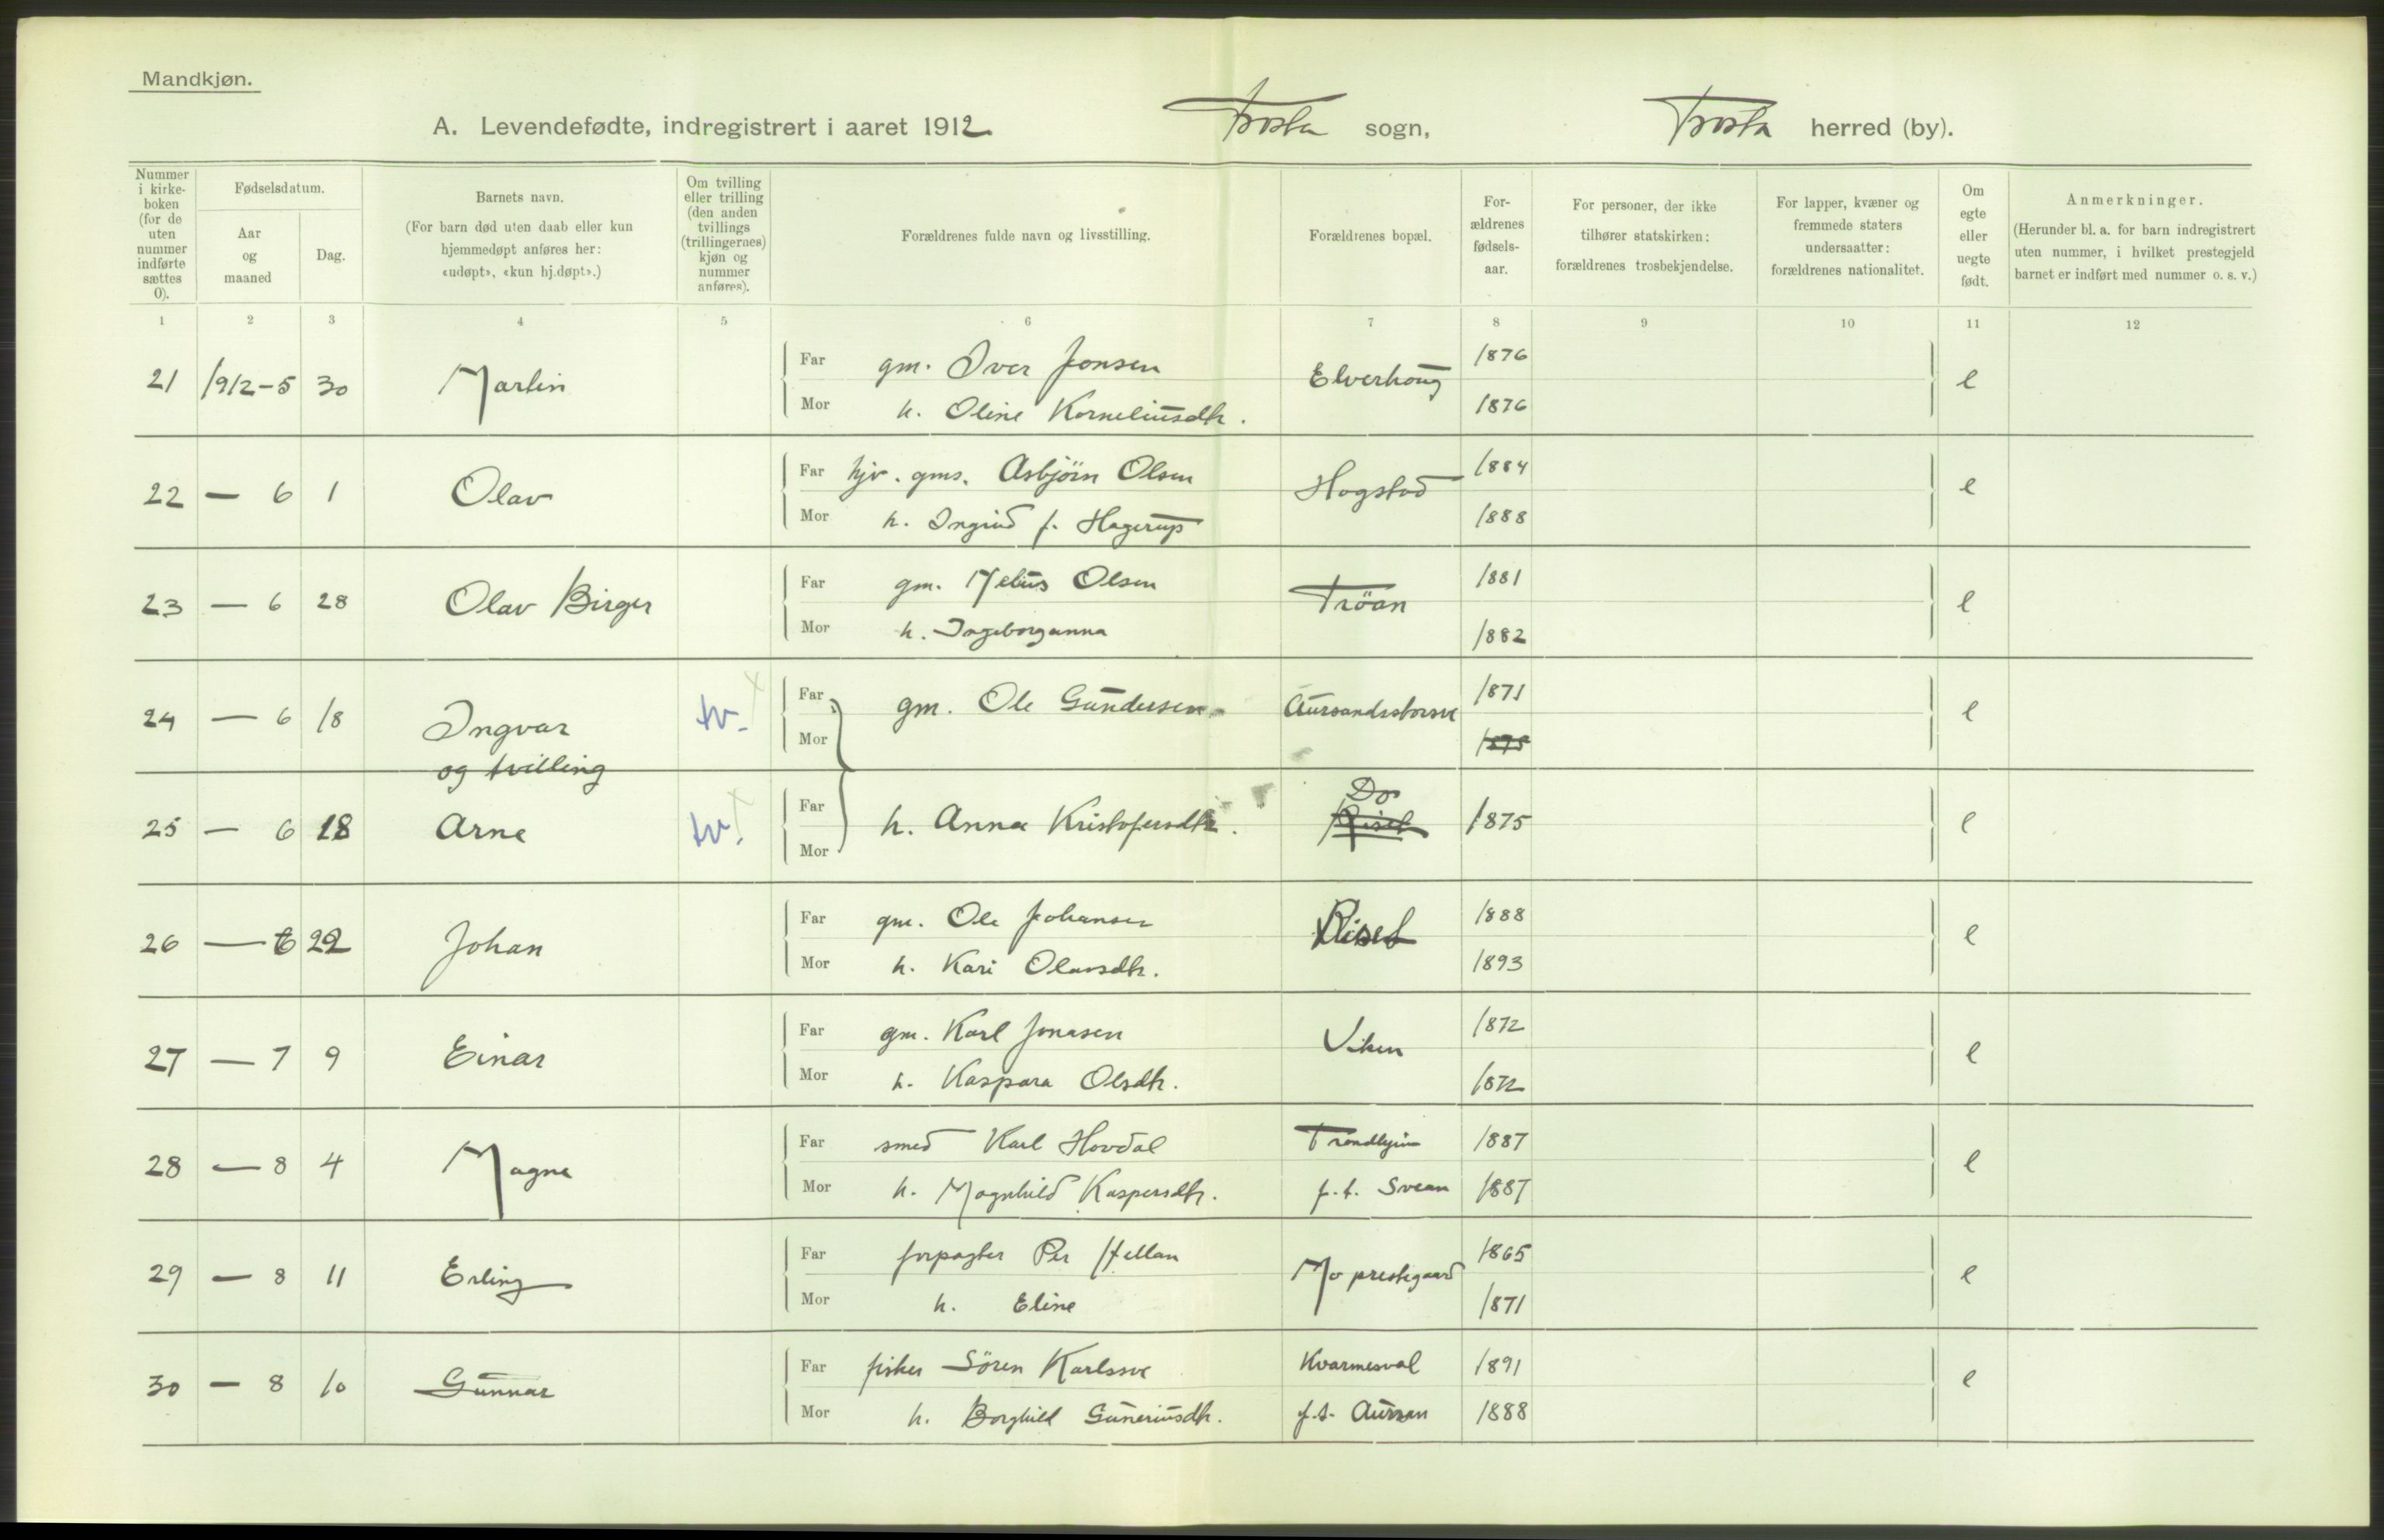 Mandkjøn.
A. Levendefødte, indregistrert i aaret 1912 Frosta sogn, Frosta herred (by).
Nummer i kirkeboken (for de uten nummer indførte sættes 0).
Fødselsdatum.
Aar og maaned
Dag.
Barnets navn.
(For barn død uten daab eller kun hjemmedøpt anføres her: «udøpt», «kun hj.døpt».)
Om tvilling eller trilling (den anden tvillings (trillingernes) kjøn og nummer anføres).
Forældrenes fulde navn og livsstilling.
Forældrenes bopæl.
Forældrenes fødselsaar.
For personer, der ikke tilhører statskirken: forældrenes trosbekjendelse.
For lapper, kvæner og fremmede staters undersaatter: forældrenes nationalitet.
Om egte eller uegte født.
Anmerkninger.
(Herunder bl. a. for barn indregistrert uten nummer, i hvilket prestegjeld barnet er indført med nummer o. s. v.)
1 2 3 4 5 6 7 8 9 10 11 12
21 1912-5 30 Martin Far gm. Iver Jonsen Elverhoug 1876 e
Mor h. Oline Korneliusdtr. 1876
22 — 6 1 Olav Far hjv. gms. Asbjörn Olsen Hogstad 1884 e
Mor h. Ingrid f. Hagerup 1888
23 — 6 28 Olav Birger Far gm. Melius Olsen Tröan 1881 e
Mor h. Ingeborganna 1882
24 — 6 18 Ingvar tv. Far gm. Ole Gundersen 1871 e
og tvilling Mor 1875
25 — 6 18 Arne tv. Far h. Anna Kristofersdtr. Do Riset 1875 e
Mor
26 — 6 22 Johan Far gm. Ole Johansen Riset 1888 e
Mor h. Kari Olavsdtr. 1893
27 — 7 9 Einar Far gm. Karl Jonasen Viken 1872 e
Mor h. Kaspara Olsdtr. 1872
28 — 8 4 Magne Far smed Karl Hovdal Trondhjem 1887 e
Mor h. Magnhild Kaspersdtr. f.t. Svean 1887
29 — 8 11 Erling Far forpagter Per Hellan Mo prestegaard 1865 e
Mor h. Eline 1871
30 — 8 10 Gunnar Far fisker Sören Karlssen 1891 e
Mor h. Borghild Guneriusdtr. f.t. Aursan 1888